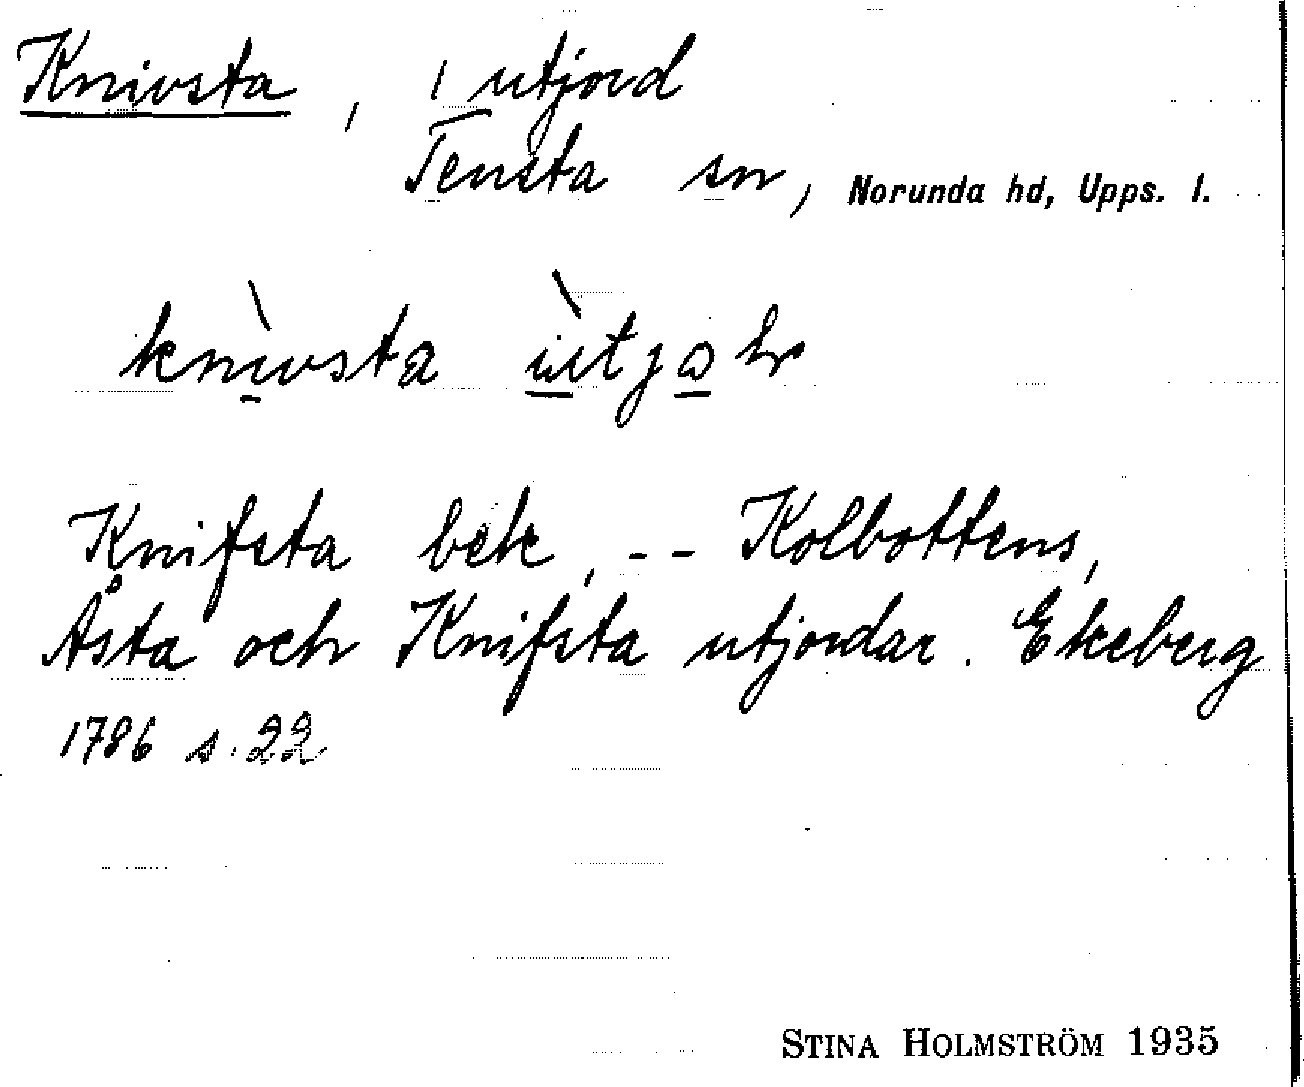 Knivsta, 1 utjord
Tensta sn, Norunda hd, Upps. l.
knìvsta ùtjo
Knifsta bek, -- Kolbottens,
Åsta och Knifsta utjordar. Ekeberg
1786 s. 22
STINA HOLMSTRÖM 1935